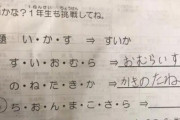 かな？1年生名挑戦してね。
題 い・か・す ⇒ すいか
す・い・お・む・ら ⇒ おむらいす
の・ね・た・き・か ⇒ かきのたね
ち・お・ん・ま・こ・さ・ら ⇒